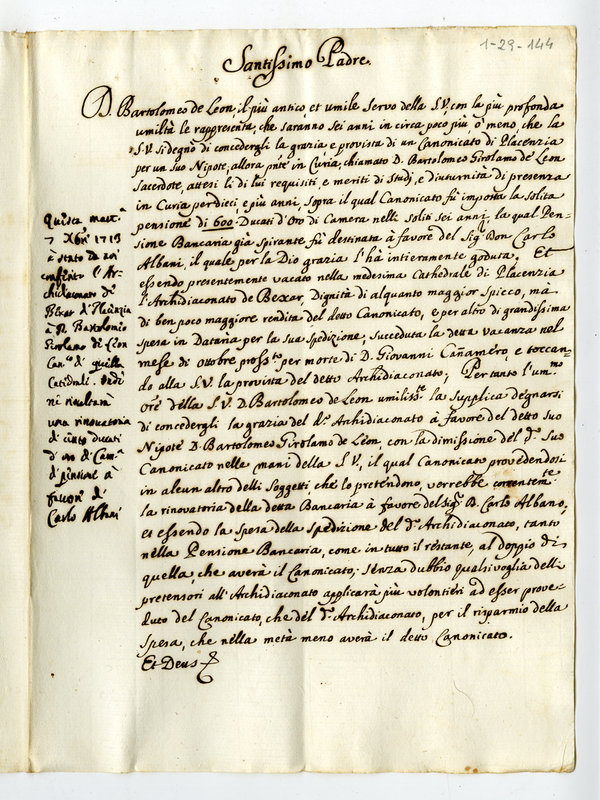 1-29-144
Santissimo Padre.
D. Bartolomeo de Leon, il più antico, et umile servo della S.V. con la più profonda
umiltà le rappresenta, che saranno sei anni in circa poco più, ò meno, che la
S.V. si degnò di concedergli la grazia e provista di un Canonicato di Placenzia
per un suo Nipote, allora pnte in Curia, chiamato D. Bartolomeo Girolamo de Leon
Sacerdote, attesi li di lui requisiti e meriti di Studj, e diuturnità di presenza
in Curia per dieci, e più anni, sopra il qual Canonicato fù imposta la solita
pensione di 600. Ducati d'Oro di Camera nelli soliti sei anni, la qual Pen=
sione Bancaria già spirante fù destinata à favore del Sigr Don Carlo
Albani, il quale per la Dio grazia l'hà intieramente goduta. Et
essendo presentemente vacato nella medesima Cathedrale di Placenzia
l'Archidiaconato de Bexar, Dignità di alquanto maggior spicco, mà
di ben poco maggiore rendita del detto Canonicato, e per altro di grandissima
spesa in Dataria per la sua spedizione, succeduta la detta vacanza nel
mese di Ottobre prossto per morte di D. Giovanni Cañamero, e toccan=
do alla S.V. la provista del detto Archidiaconato; Per tanto l'ummo
Ore della S.V. D. Bartolomeo de Leon umilisste la supplica degnarsi
di concedergli la grazia del do Archidiaconato à favore del detto suo
Nipote D. Bartolomeo Girolamo de Leon, con la dimissione del do suo
Canonicato nelle mani della S.V., il qual Canonicato provedendosi
in alcun altro delli Soggetti, che lo pretendono, verrebbe correntemte
la rinovatoria della detta Bancaria à favore del Sigr D. Carlo Albano,
et essendo la spesa della spedizione del do Archidiaconato, tanto
nella Pensione Bancaria, come in tutto il restante, al doppio di
quella, che averà il Canonicato; senza dubbio qualsivoglia delli
pretensori all'Archidiaconato applicarà più volontieri ad esser prove=
duto del Canonicato, che del do Archidiaconato, per il risparmio della
spesa, che nella metà meno averà il detto Canonicato.
Et Deus
7 Xbre 1713
è stato da noi
conferito l'Ar=
chidiaconato di
Bexar di Placenzia
à D. Bartolomeo
Girolamo di Leon
Canco di quella
Catedrale.
ne risultarà
una rinovatoria
di cento ducati
d'oro di Cama
di pensione à
favore di
Carlo Albani